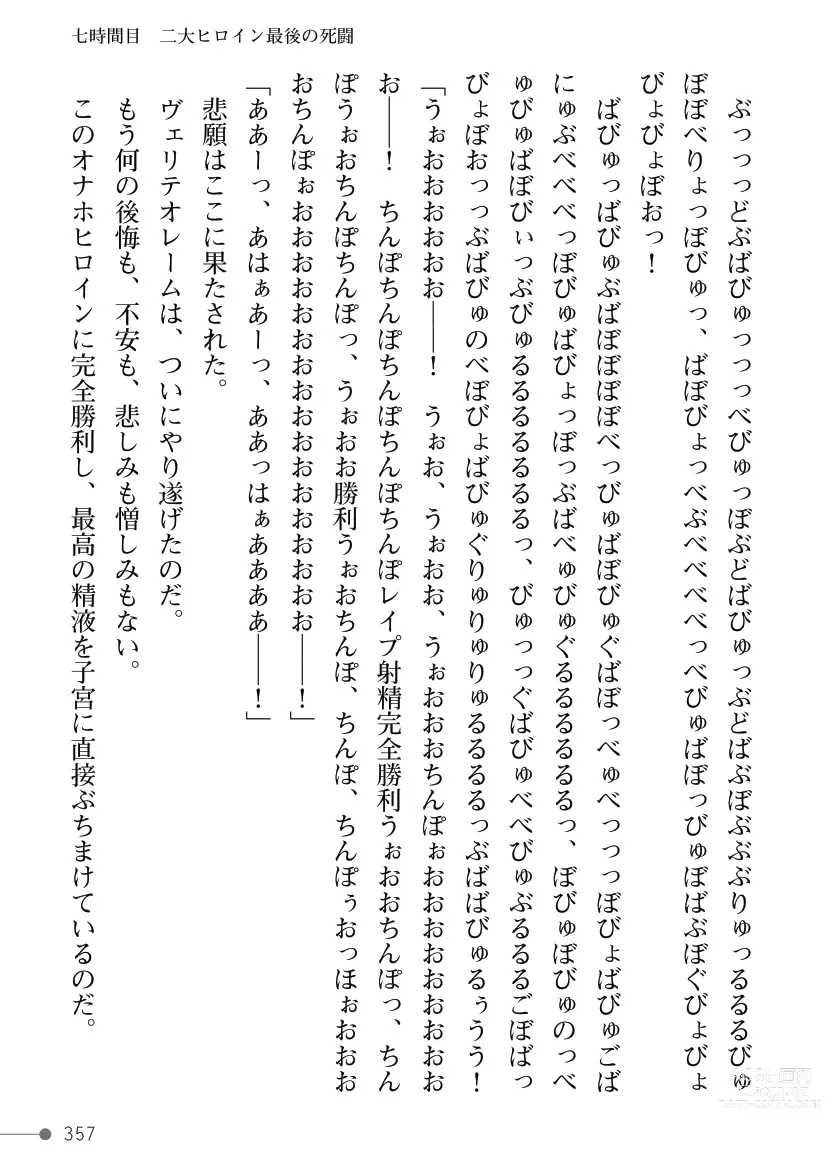 七時間目　二大ヒロイン最後の死闘
ぶっっっどぶばびゅっっっべびゅっぼぶどばびゅっぶどばぶぼぶぶぶりゅっるるるびゅ
ぼぼべりょっぼびゅっ、ばぼびょっべぶべべべべっべびゅばぼっびゅぼばぶぼぐびょびょ
びょびょぼおっ！
ばびゅっばびゅぶばぼぼぼぼべっびゅばぼびゅぐばぼっべゅべっっっぼびょばびゅごば
にゅぶべべべっぼびゅばびょっぼっぶばべゅびゅぐるるるるるるっ、ぼびゅぼびゅのっべ
ゅびゅばぼびぃっぶびゅるるるるるるるるっ、びゅっっぐばびゅべべびゅぶるるるごぼばっ
びょぼおっっぶばびゅのべぼびょばびゅぐりゅりゅりゅるるるるっぶばばびゅるぅうう！
「うぉおおおおおお――！　うぉお、うぉおお、うぉおおおちんぽぉおおおおおおおおお
お――！　ちんぽちんぽちんぽちんぽちんぽレイプ射精完全勝利うぉおおちんぽっ、ちん
ぽうぉおちんぽちんぽっ、うぉおお勝利うぉおちんぽ、ちんぽ、ちんぽぅおっほぉおおお
おちんぽぉおおおおおおおおおおおおおおおお――！」
「ああーっ、あはぁあーっ、ああっはぁああああ――！」
悲願はここに果たされた。
ヴェリテオレームは、ついにやり遂げたのだ。
もう何の後悔も、不安も、悲しみも憎しみもない。
このオナホヒロインに完全勝利し、最高の精液を子宮に直接ぶちまけているのだ。
357